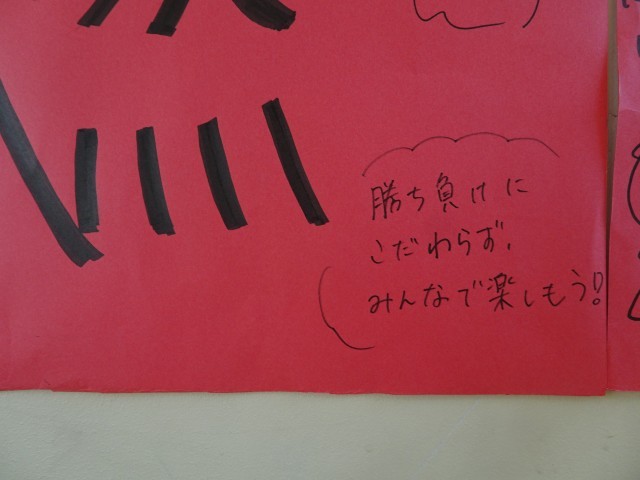 勝ち負けに
こだわらず、
みんなで楽しもう!